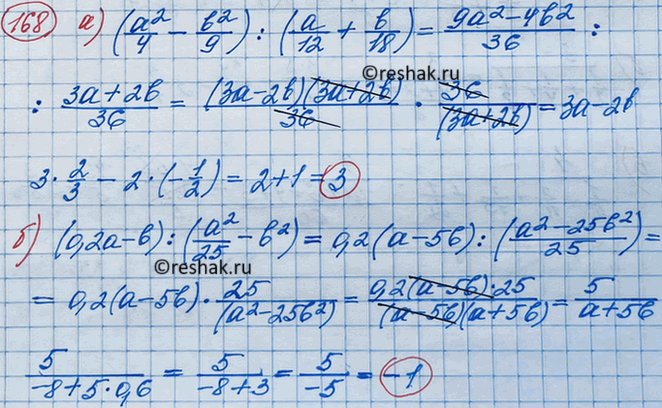 168 а) (a²/4 − b²/9) : (a/12 + b/18) = (9a²−4b²)/36 :
©reshak.ru
: (3a+2b)/36 = (3a−2b)(3a+2b)/36 · 36/(3a+2b) = 3a−2b
3·2/3 − 2·(−1/2) = 2+1 = 3
б) (0,2a−b) : (a²/25 − b²) = 0,2(a−5b) : ((a²−25b²)/25) =
©reshak.ru
= 0,2(a−5b)·25/(a²−25b²) = 0,2(a−5b)·25/(a−5b)(a+5b) = 5/(a+5b)
5/(−8+5·0,6) = 5/(−8+3) = 5/−5 = −1